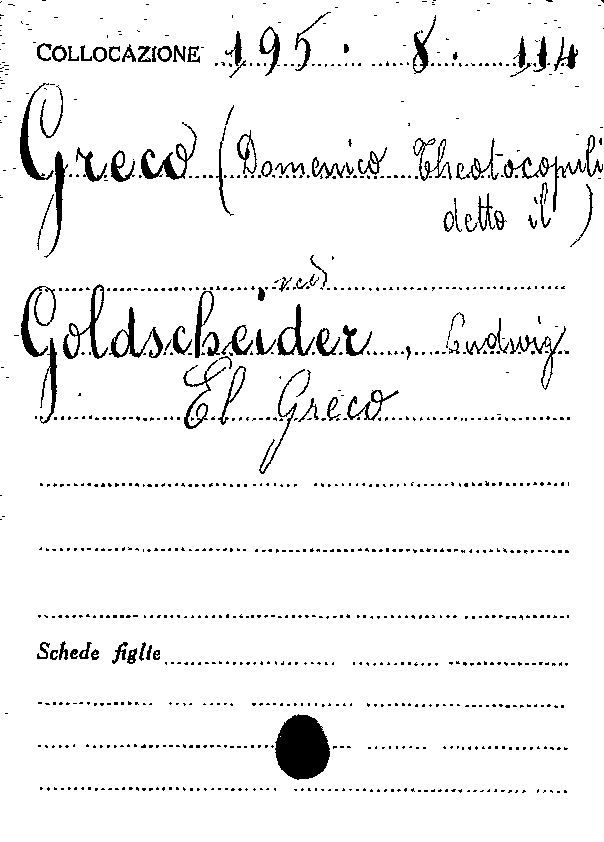 COLLOCAZIONE 195. 8. 114
Greco (Domenico Theotocopuli
detto il)
vedi
Goldscheider, Ludwig
El Greco
Schede figlie